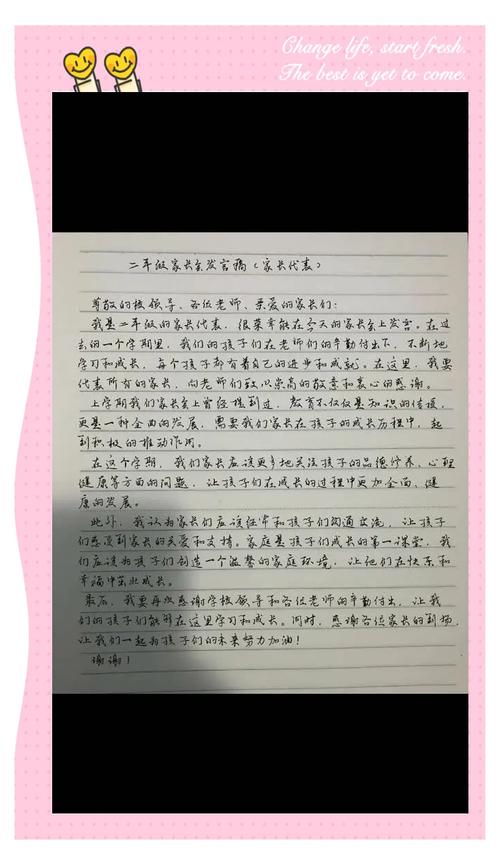 Change life, start fresh.
The best is yet to come.
二年级家长会发言稿(家长代表)
尊敬的校领导、各位老师、亲爱的家长们:
我是二年级的家长代表,很荣幸能在今天的家长会上发言。在过
去的一个学期里,我们的孩子们在老师们的辛勤付出下,不断地
学习和成长,每个孩子都有着自己的进步和成就。在这里,我要
代表所有的家长,向老师们致以崇高的敬意和衷心的感谢。
上学期我们家长会上曾经提到过,教育不仅仅是知识的传授,
更是一种全面的发展,需要我们家长在孩子的成长历程中,起
到积极的推动作用。
在这个学期,我们家长应该更多地关注孩子的品德修养、心理
健康等方面的问题,让孩子们在成长的过程中更加全面、健
康的发展。
此外,我认为家长们应该经常和孩子们沟通交流,让孩子
们感受到家长的关爱和支持。家庭是孩子们成长的第一课堂,我
们应该为孩子们创造一个温馨的家庭环境,让他们在快乐和
幸福中茁壮成长。
最后,我要再次感谢学校领导和各位老师的辛勤付出,让我
们的孩子们能够在这里学习和成长。同时,感谢各位家长的到场,
让我们一起为孩子们的未来努力加油!
谢谢!